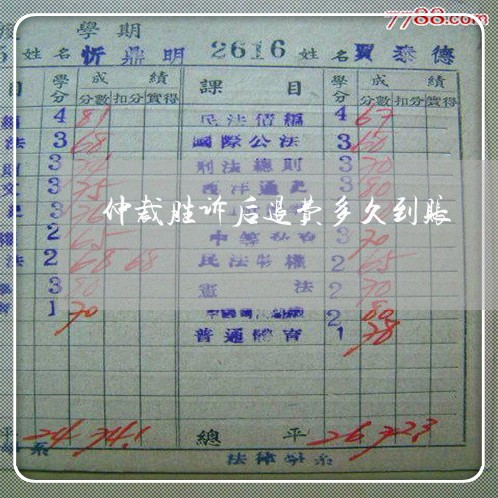 7788.com
學期
姓名 忻鼎明 2616 姓名 賈泰德
目 學分 成績 課目 學分 成績
分數 扣分 實得 分數 扣分 實得
4 81 民法債編 4 67
法 3 68 國際公法 3 60
則 3 刑法總則 3 70
文 3 75 西洋通史 3 80
史 3
仲裁胜诉后退费多久到账
2 65 3 70
法 2 68 68 民法物權 2 65
3 80 憲法 2 70
1 70 2 80
普通體育 1 78
平 24 74.1 總平 26 72.3
系 法律學系